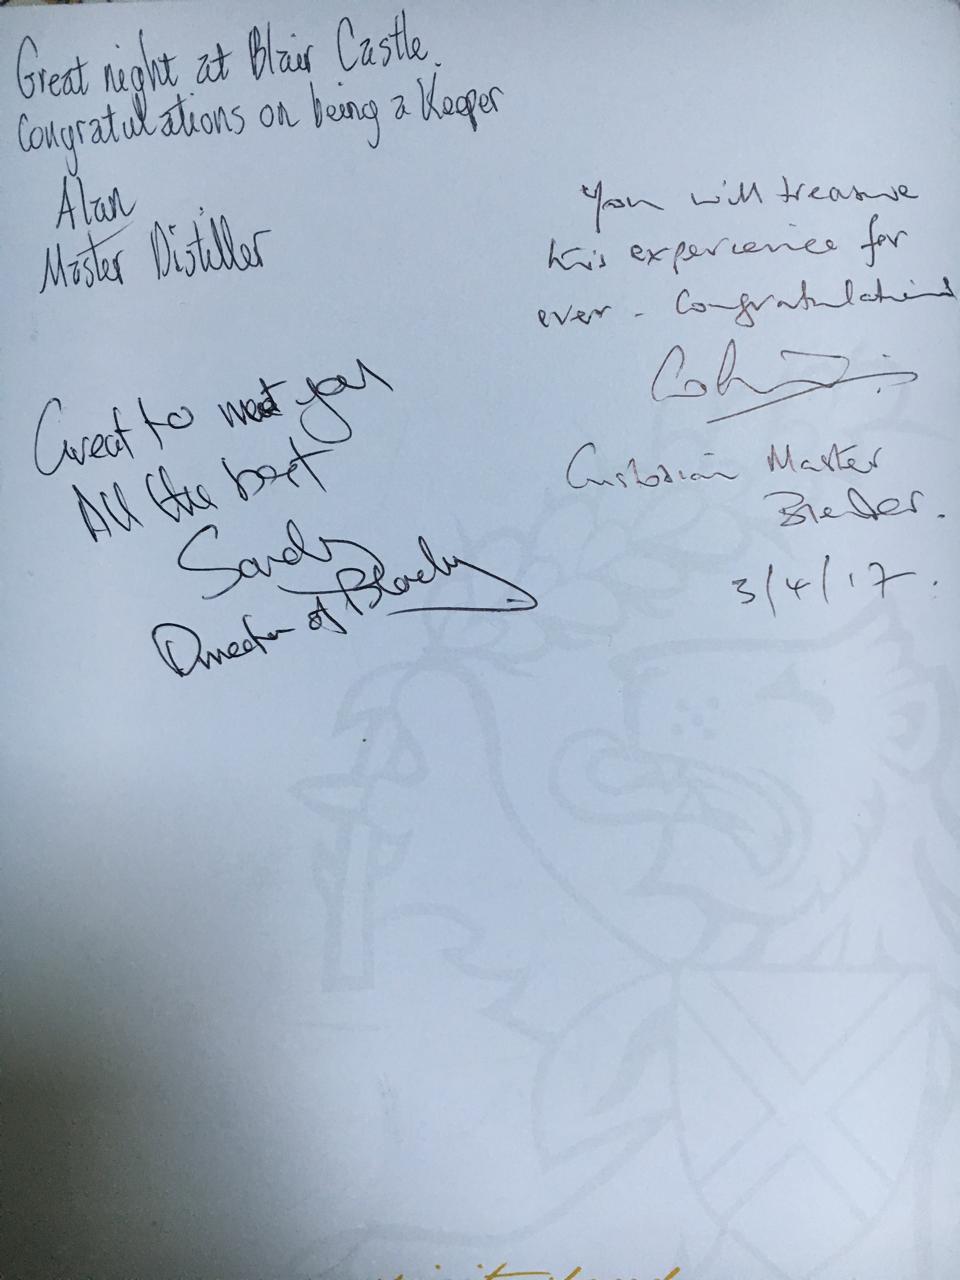 Great night at Blair Castle.
Congratulations on being a Keeper
Alan
Master Distiller
You will treasure
this experience for
ever - Congratulations
Custodian Master
Blender.
3/4/17.
Great to meet you
All the best
Sandy
Director of